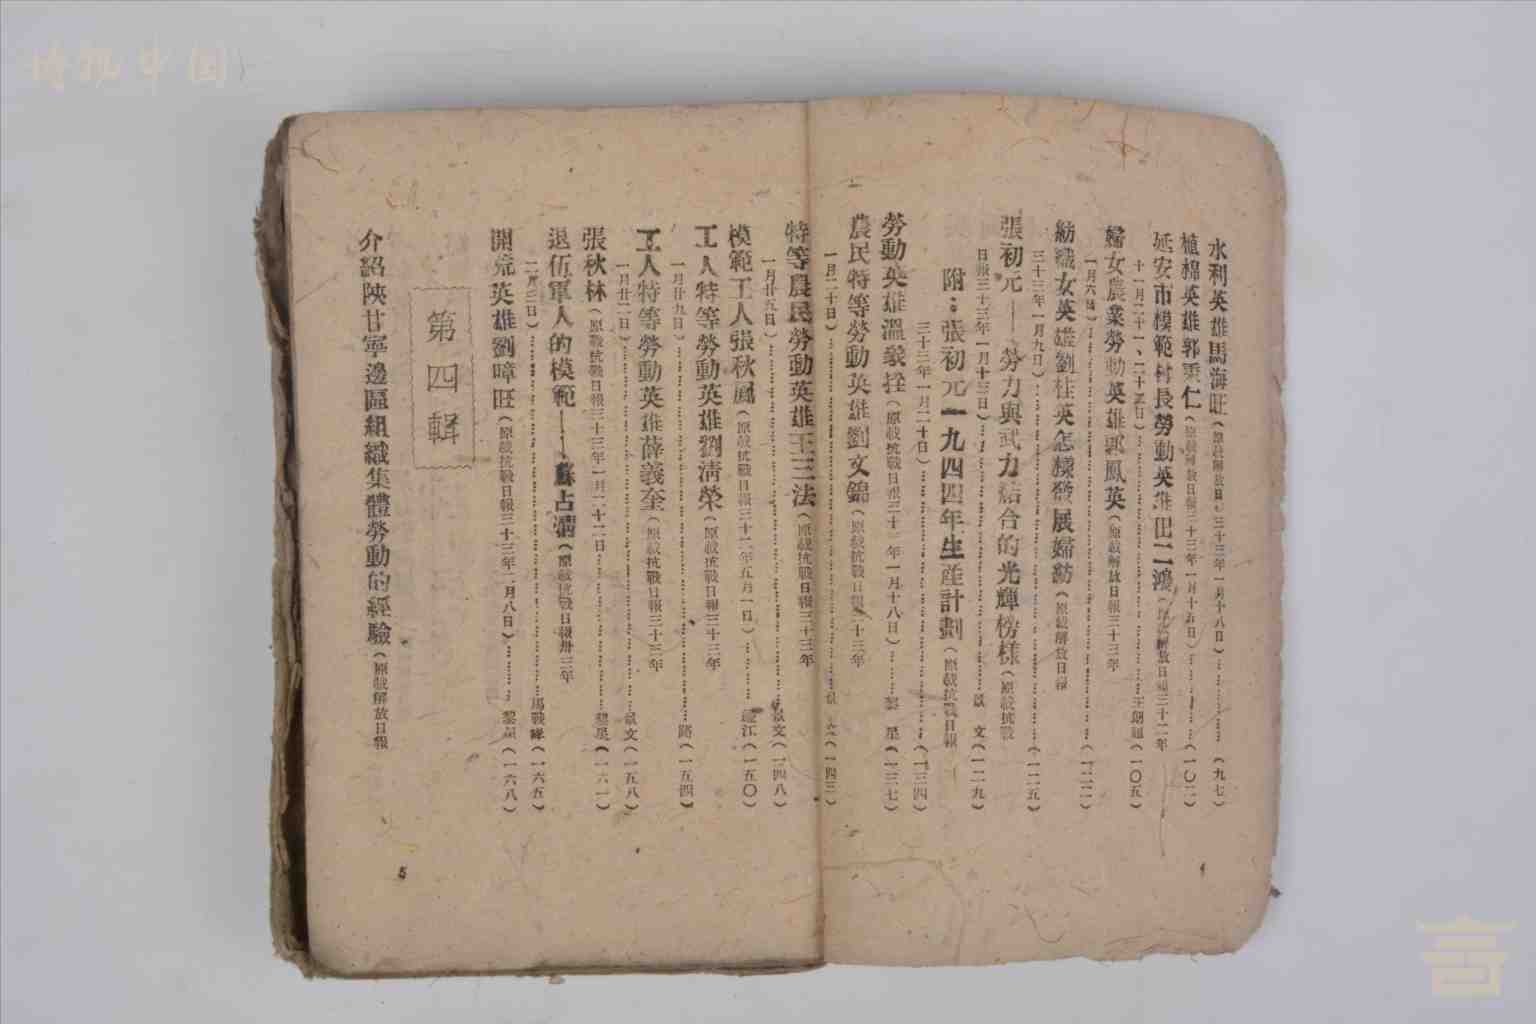 博观中国
水利英雄馬海旺(原載解放日報三十三年一月十八日)……(九七)
植棉英雄郭秉仁(原載解放日報三十三年一月十五日)……(一〇二)
延安市模範村長勞動英雄田二鴻(原載解放日報三十二年
十一月二十一、二十五日)……王朗超(一〇五)
婦女農業勞動英雄郭鳳英(原載解放日報三十三年
一月六日)……(一二二)
紡織女英雄劉桂英怎樣發展婦紡(原載解放日報
三十三年一月九日)……(一二五)
張初元——勞力與武力結合的光輝榜樣(原載抗戰
日報三十三年一月十三日)……景文(一二九)
附:張初元一九四四年生產計劃(原載抗戰日報
三十三年一月二十日)……(一三四)
勞動英雄溫象拴(原載抗戰日報三十三年一月十八日)……黎星(一三七)
農民特等勞動英雄劉文錦(原載抗戰日報三十三年
一月二十日)……景文(一四三)
特等農民勞動英雄王三法(原載抗戰日報三十三年
一月廿五日)……景文(一四八)
模範工人張秋鳳(原載抗戰日報三十二年五月一日)……江(一五〇)
工人特等勞動英雄劉清榮(原載抗戰日報三十三年
一月廿九日)……路(一五四)
工人特等勞動英雄薛義奎(原載抗戰日報三十三年
一月廿二日)……景文(一五八)
張秋林(原載抗戰日報三十三年一月二十二日……黎星(一六一)
退伍軍人的模範——蘇占清(原載抗戰日報卅三年
二月三日)……馬戰隊(一六五)
開荒英雄劉暐旺(原載抗戰日報三十三年二月八日)……黎星(一六八)
第四輯
介紹陝甘寧邊區組織集體勞動的經驗(原載解放日報
4
5